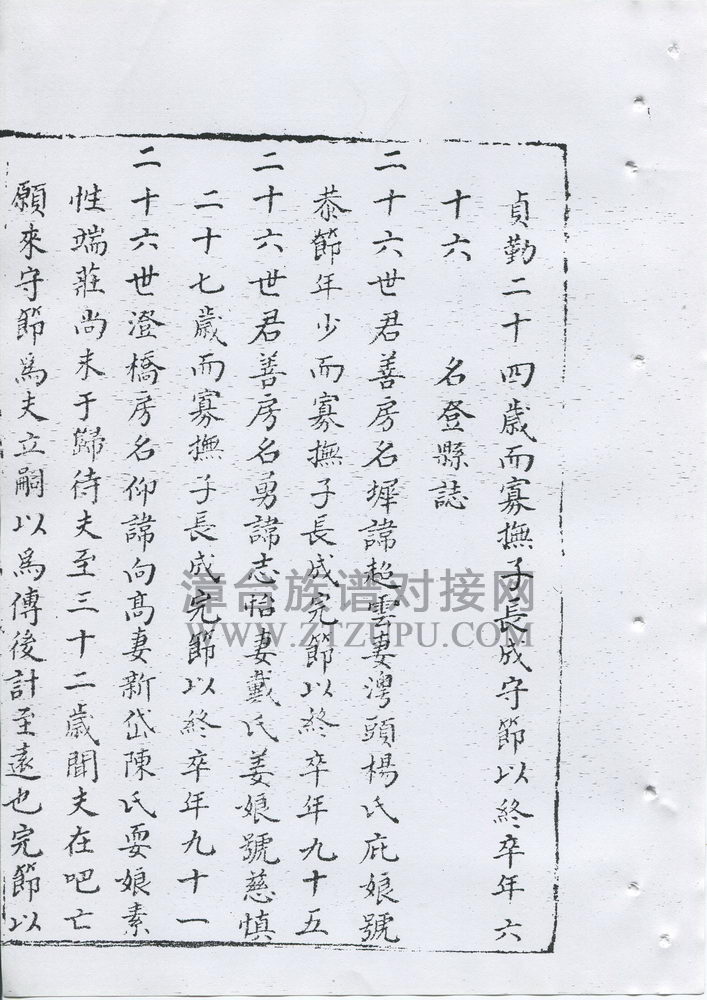 貞勤二十四歲而寡撫子長成守節以終卒年六
十六　名登縣誌
二十六世君善房名墀諱超雲妻灣頭楊氏庇娘號
恭節年少而寡撫子長成完節以終卒年九十五
二十六世君善房名勇諱志怡妻戴氏姜娘號慈慎
二十七歲而寡撫子長成完節以終卒年九十一
二十六世澄橋房名仰諱向高妻新岱陳氏耍娘素
性端莊尚未于歸待夫至三十二歲聞夫在吧亡
願來守節為夫立嗣以為傳後計至遠也完節以
漳台族谱对接网
WWW.ZTZUPU.COM